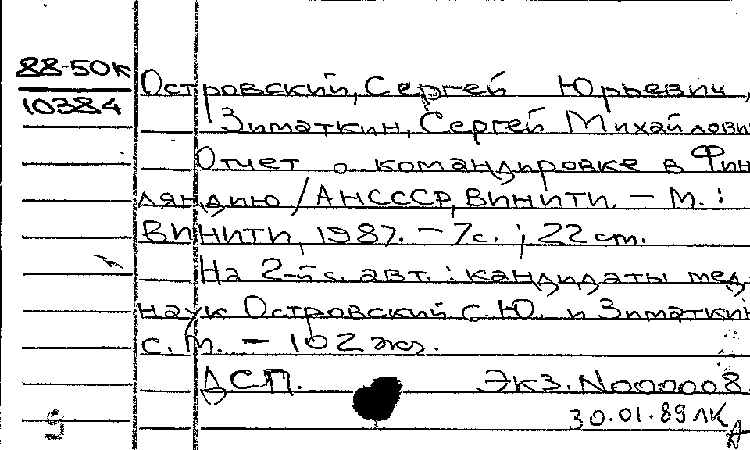 88-50к
10384
Островский, Сергей Юрьевич,
Зиматкин, Сергей Михайлови
Отчет о командировке в Фин
ляндию / АНСССР, ВИНИТИ. — М. :
ВИНИТИ, 1987. — 7с. ; 22 cm.
На 2-й с. авт. : кандидаты мед
наук Островский С.Ю. и Зиматкин
С. М. — 102 экз.
ДСП. Экз. №000008
30.01.89 ЛК